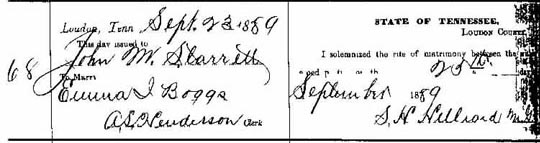 Loudon, Tenn Sept. 23 1889
This day issued to
68 John M. Starrett
To Marry
Emma I Boggs
A.S. Henderson Clerk
STATE OF TENNESSEE,
LOUDON COUNTY
I solemnized the rite of matrimony between the
25th
September 1889
S. H. Hilliard M.G.